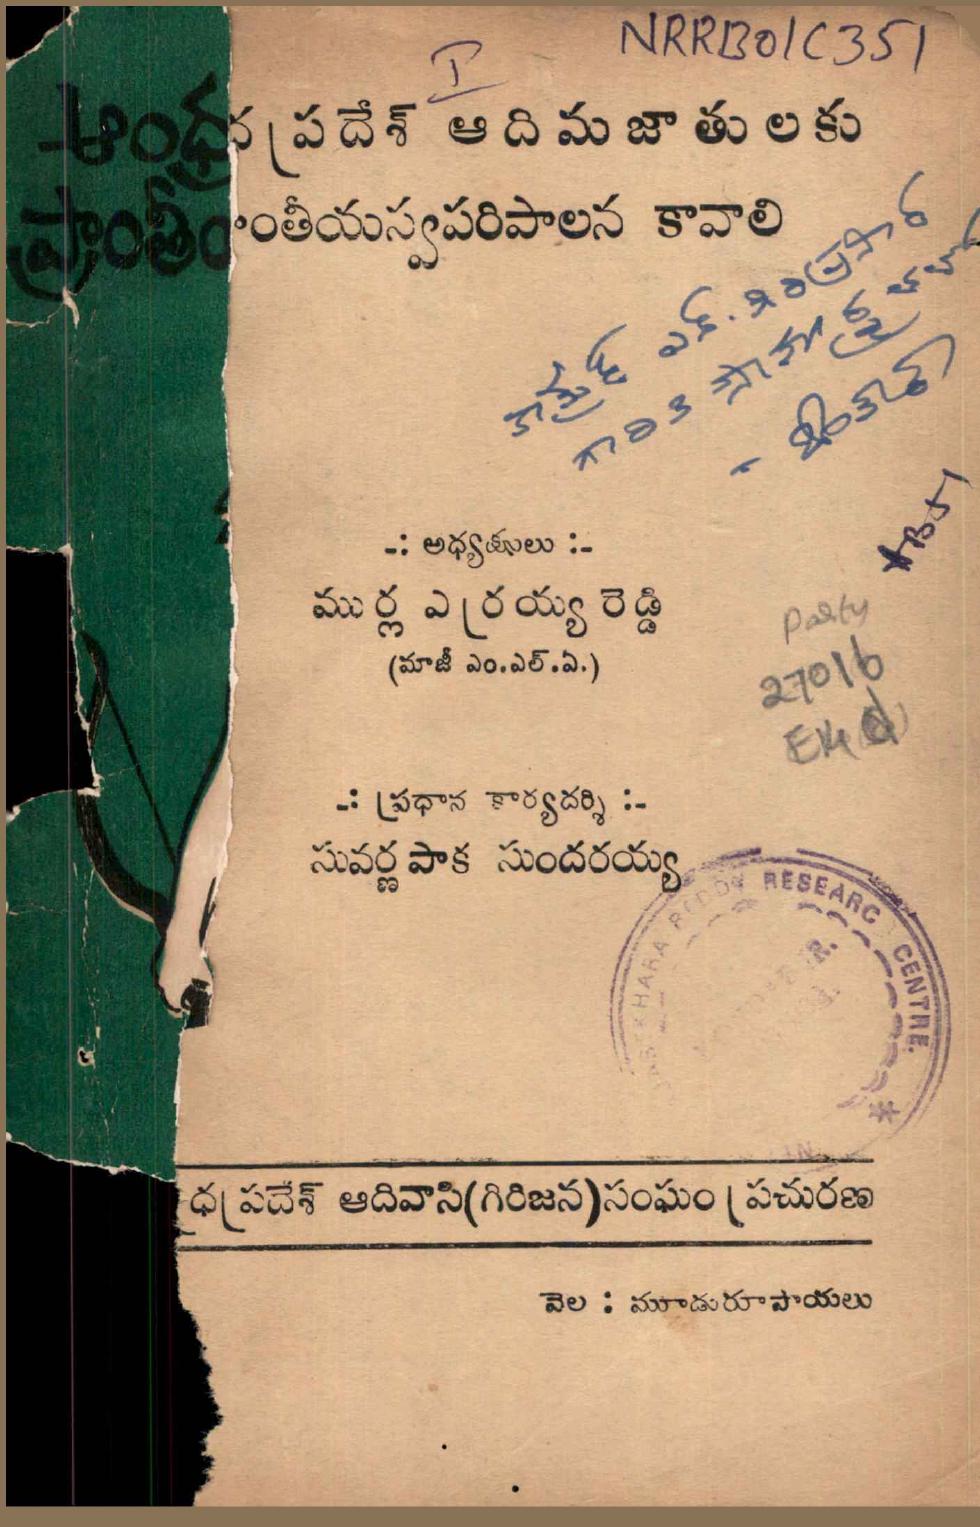 NRRB01C351
I
ఆంధ్రప్రదేశ్ ఆదిమజాతులకు
ప్రాంతీయస్వపరిపాలన కావాలి
కామ్రేడ్ ఎన్. గిరిప్రసాద్
గారికి
-: అధ్యక్షులు :-
ముర్ల ఎర్రయ్యరెడ్డి
(మాజీ ఎం.ఎల్.ఏ.)
Party
27016
-: ప్రధాన కార్యదర్శి :-
సువర్ణపాక సుందరయ్య
REDDY RESEARC CENTRE.
ధప్రదేశ్ ఆదివాసి(గిరిజన)సంఘం ప్రచురణ
వెల : మూడురూపాయలు